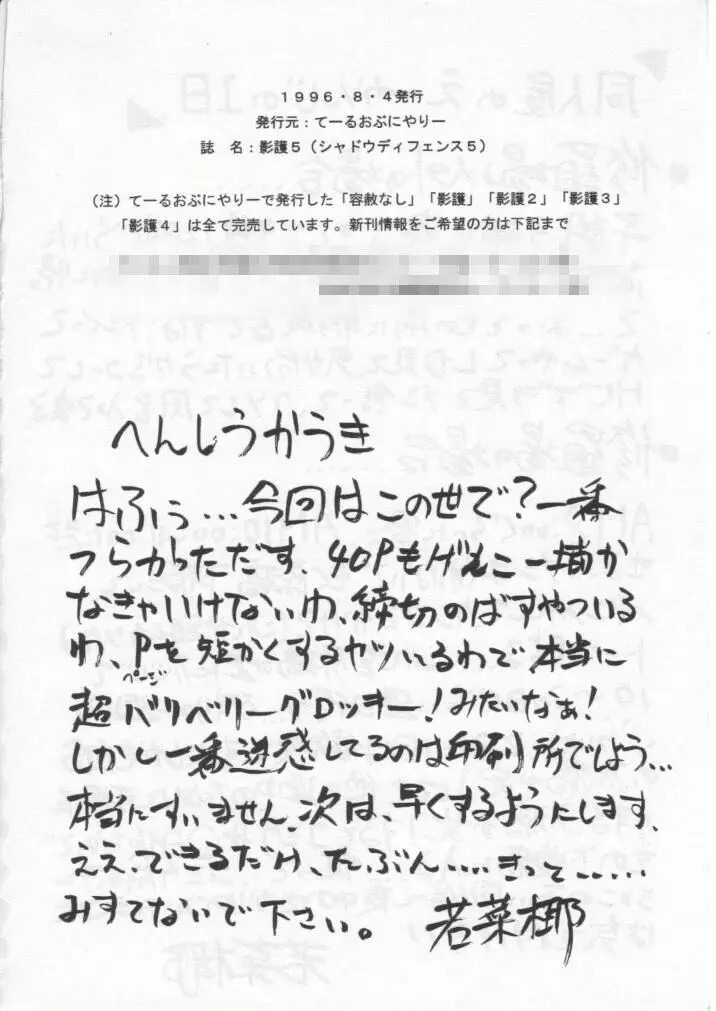 1996・8・4発行
発行元：てーるおぶにやりー
誌　名：影護5（シャドウディフェンス5）
（注）てーるおぶにやりーで発行した「容赦なし」「影護」「影護2」「影護3」
「影護4」は全て完売しています。新刊情報をご希望の方は下記まで
へんしうかうき
はふぅ…今回はこの世で?一番
つらかっただす、40Pもゲんこー描か
なきゃいけないわ、締切のばすやついる
わ、Pを短かくするヤツいるわで本当に
ページ
超ベリベリーグロッキー!みたいなぁ!
しかし一番迷惑してるのは印刷所でしよう…
本当にすいません。次は、早くするようにします、
ええ、できるだけ、たぶん……きって……
みすてないで下さい。 若菜椰